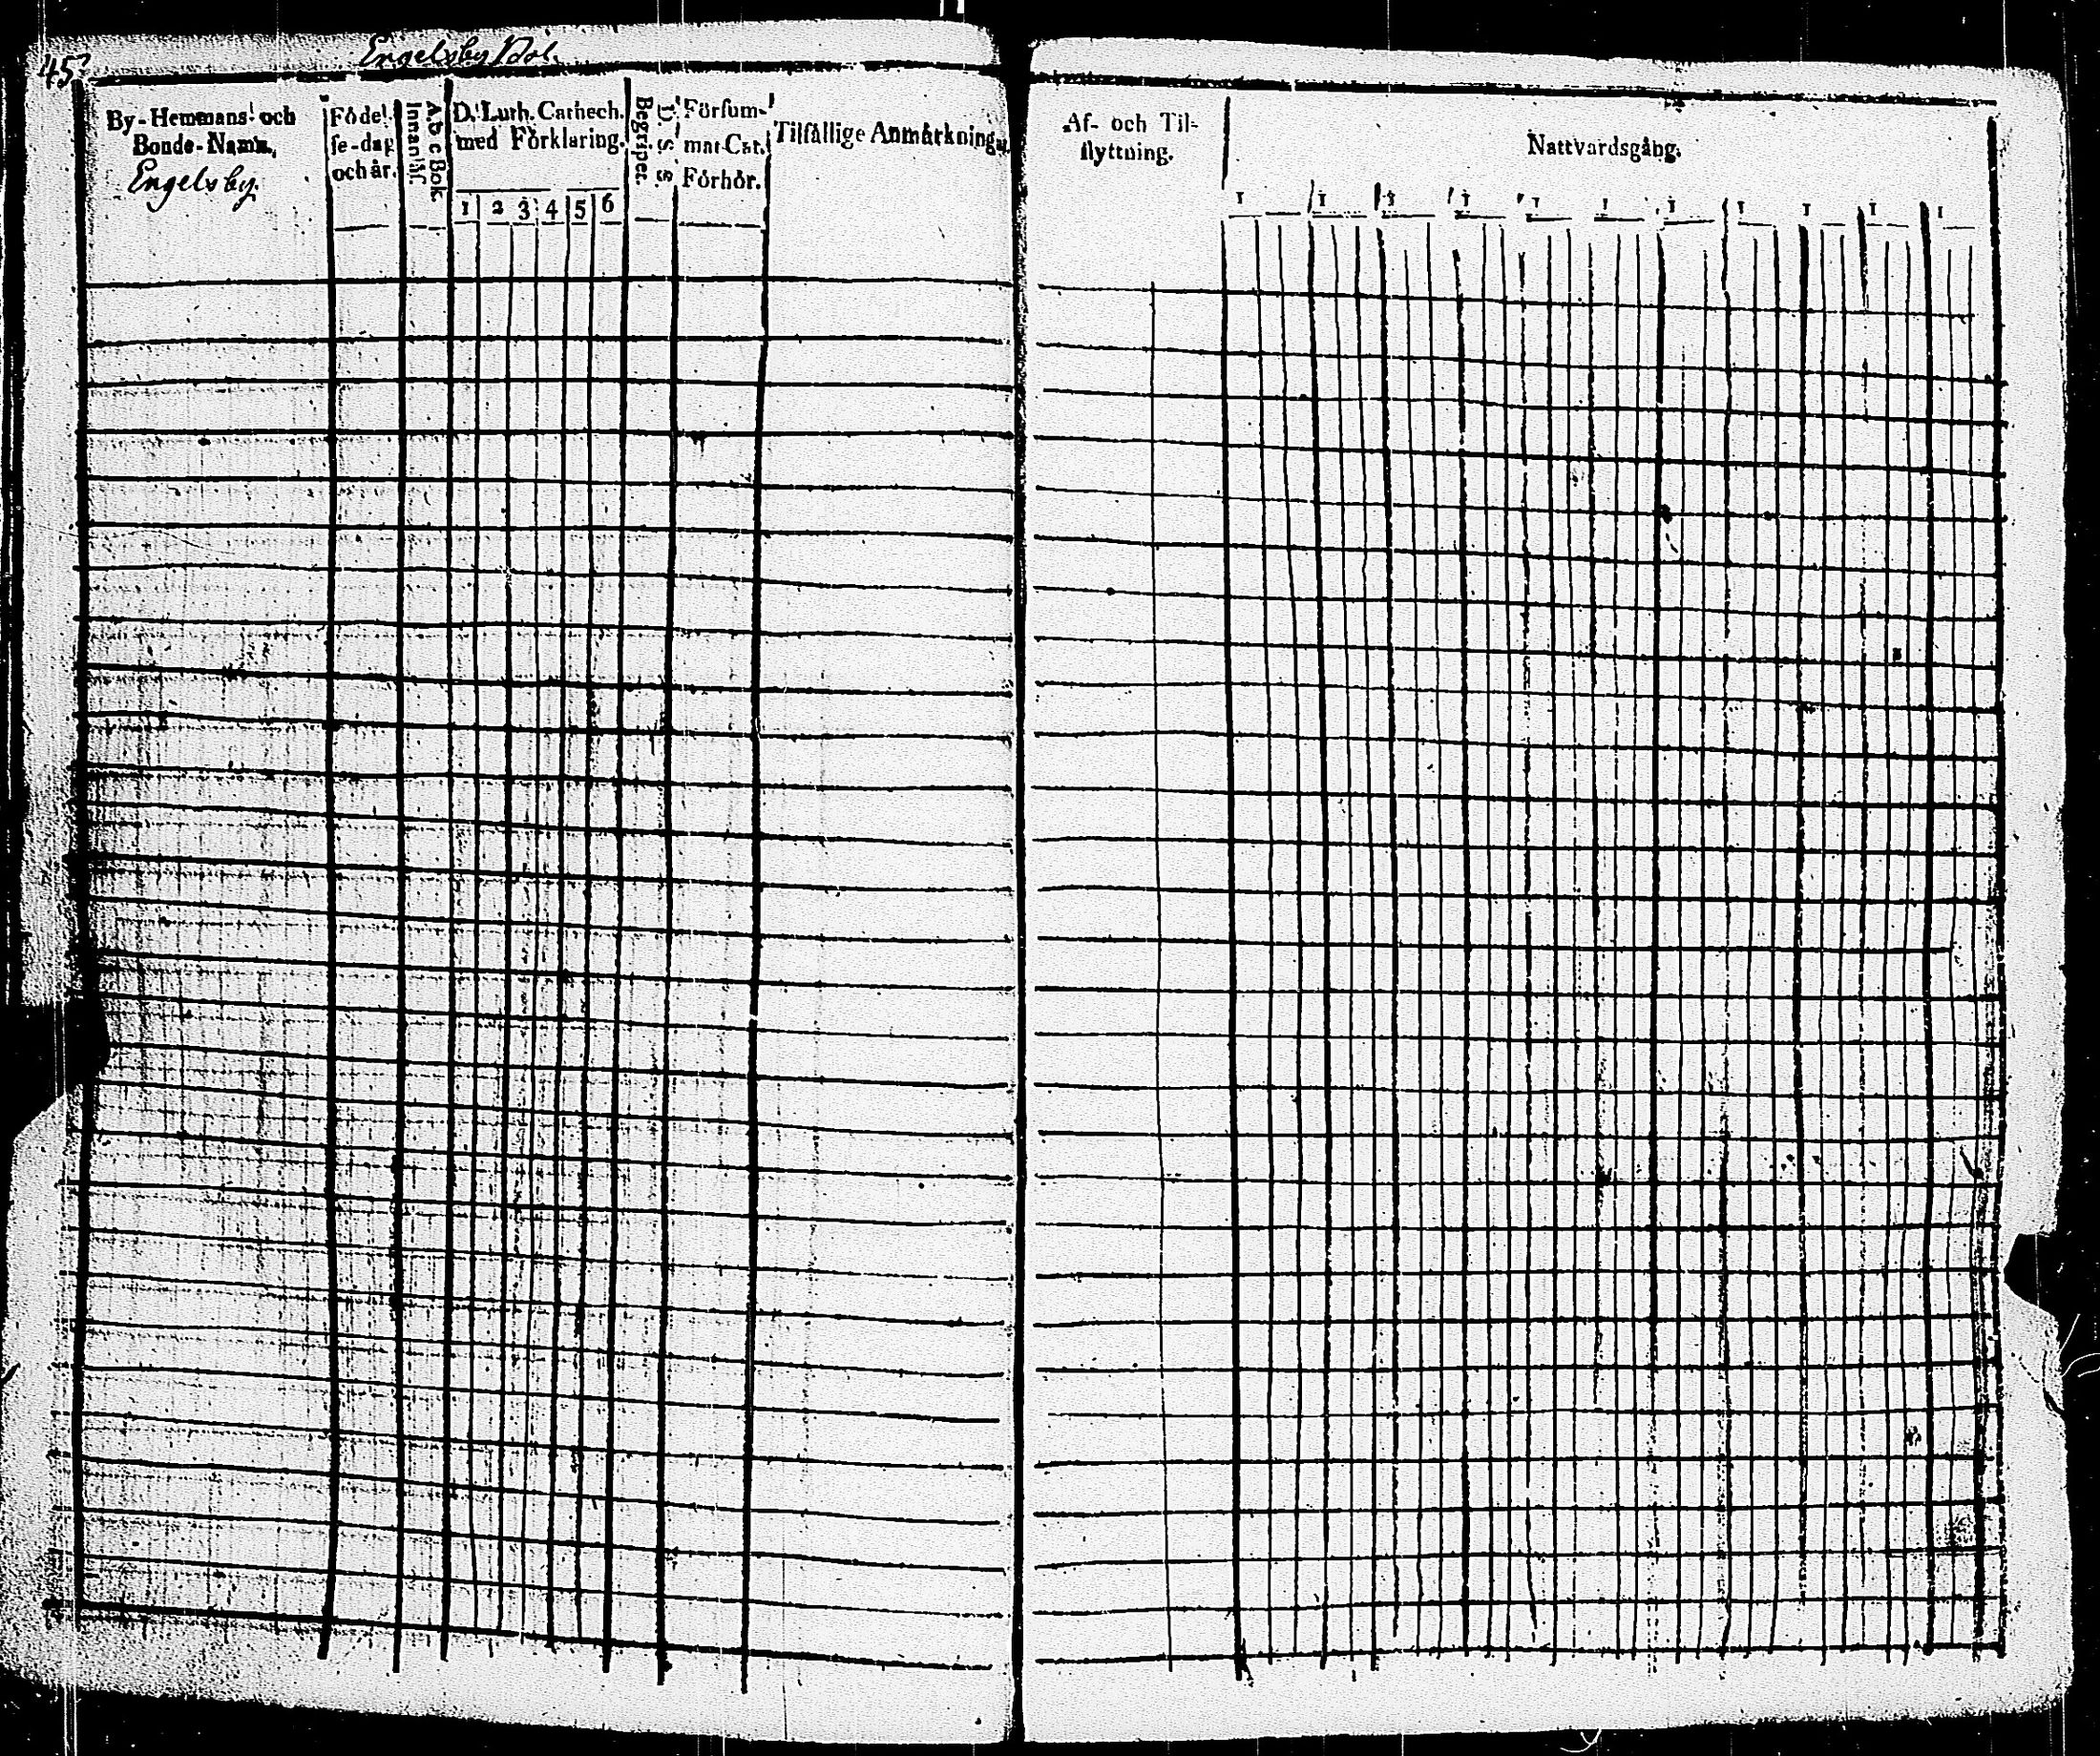 Engelsby Bol.
By-Hemmans och
Bonde-Namn.
Engelsby.
Födel-
se-dag
och år.
A b c Bok.
Innanläs.
D. Luth. Cathech.
med Förklaring.
1 2 3 4 5 6
Begriper.
Försum-
mat Cat.
Förhör.
Tilfällige Anmärkningar.
Af- och Til-
flyttning.
Nattvardsgång.
1 1 1 1 1 1 1 1 1 1 1